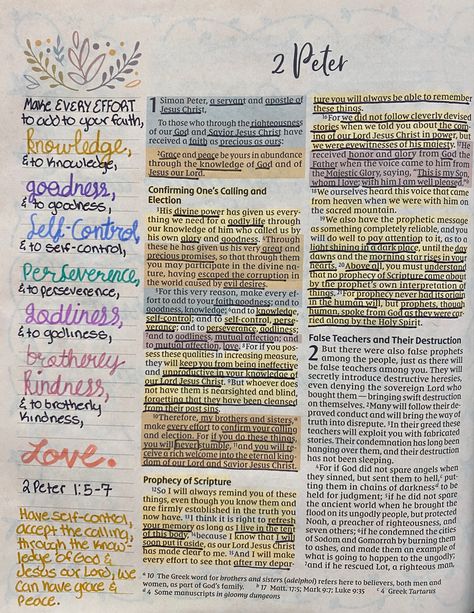 2 Peter
MAKE EVERY EFFORT
to add to your faith,
knowledge,
& to knowledge,
goodness,
& to goodness,
Self-Control
& to self-control,
Perseverence,
& to perseverence,
Godliness,
& to godliness,
brotherly
kindness,
& to brotherly
kindness,
Love.
2 Peter 1:5-7
Have self-control,
accept the calling,
through the know-
ledge of God &
Jesus our Lord, we
can have grace &
peace.
1 Simon Peter, a servant and apostle of
Jesus Christ,
To those who through the righteousness
of our God and Savior Jesus Christ have
received a faith as precious as ours:
2Grace and peace be yours in abundance
through the knowledge of God and of
Jesus our Lord.
Confirming One's Calling and
Election
3His divine power has given us every-
thing we need for a godly life through
our knowledge of him who called us by
his own glory and goodness. 4Through
these he has given us his very great and
precious promises, so that through them
you may participate in the divine na-
ture, having escaped the corruption in
the world caused by evil desires.
5For this very reason, make every ef-
fort to add to your faith goodness; and to
goodness, knowledge; 6and to knowledge,
self-control; and to self-control, perse-
verance; and to perseverance, godliness;
7and to godliness, mutual affection; and
to mutual affection, love. 8For if you pos-
sess these qualities in increasing measure,
they will keep you from being ineffective
and unproductive in your knowledge of
our Lord Jesus Christ. 9But whoever does
not have them is nearsighted and blind,
forgetting that they have been cleansed
from their past sins.
10Therefore, my brothers and sisters,a
make every effort to confirm your calling
and election. For if you do these things,
you will never stumble, 11and you will re-
ceive a rich welcome into the eternal king-
dom of our Lord and Savior Jesus Christ.
Prophecy of Scripture
12So I will always remind you of these
things, even though you know them and
are firmly established in the truth you
now have. 13I think it is right to refresh
your memory as long as I live in the tent
of this body, 14because I know that I will
soon put it aside, as our Lord Jesus Christ
has made clear to me. 15And I will make
every effort to see that after my depar-
ture you will always be able to remember
these things.
16For we did not follow cleverly devised
stories when we told you about the com-
ing of our Lord Jesus Christ in power, but
we were eyewitnesses of his majesty. 17He
received honor and glory from God the
Father when the voice came to him from
the Majestic Glory, saying, "This is my Son,
whom I love; with him I am well pleased."b
18We ourselves heard this voice that came
from heaven when we were with him on
the sacred mountain.
19We also have the prophetic message
as something completely reliable, and you
will do well to pay attention to it, as to a
light shining in a dark place, until the day
dawns and the morning star rises in your
hearts. 20Above all, you must understand
that no prophecy of Scripture came about
by the prophet's own interpretation of
things. 21For prophecy never had its origin
in the human will, but prophets, though
human, spoke from God as they were car-
ried along by the Holy Spirit.
False Teachers and Their Destruction
2 But there were also false prophets
among the people, just as there will
be false teachers among you. They will
secretly introduce destructive heresies,
even denying the sovereign Lord who
bought them — bringing swift destruction
on themselves. 2Many will follow their de-
praved conduct and will bring the way of
truth into disrepute. 3In their greed these
teachers will exploit you with fabricated
stories. Their condemnation has long been
hanging over them, and their destruction
has not been sleeping.
4For if God did not spare angels when
they sinned, but sent them to hell,c put-
ting them in chains of darknessd to be
held for judgment; 5if he did not spare
the ancient world when he brought the
flood on its ungodly people, but protected
Noah, a preacher of righteousness, and
seven others; 6if he condemned the cities
of Sodom and Gomorrah by burning them
to ashes, and made them an example of
what is going to happen to the ungodly;
7and if he rescued Lot, a righteous man,
a 10 The Greek word for brothers and sisters (adelphoi) refers here to believers, both men and
women, as part of God's family. b 17 Matt. 17:5; Mark 9:7; Luke 9:35 c 4 Greek Tartarus
d 4 Some manuscripts in gloomy dungeons